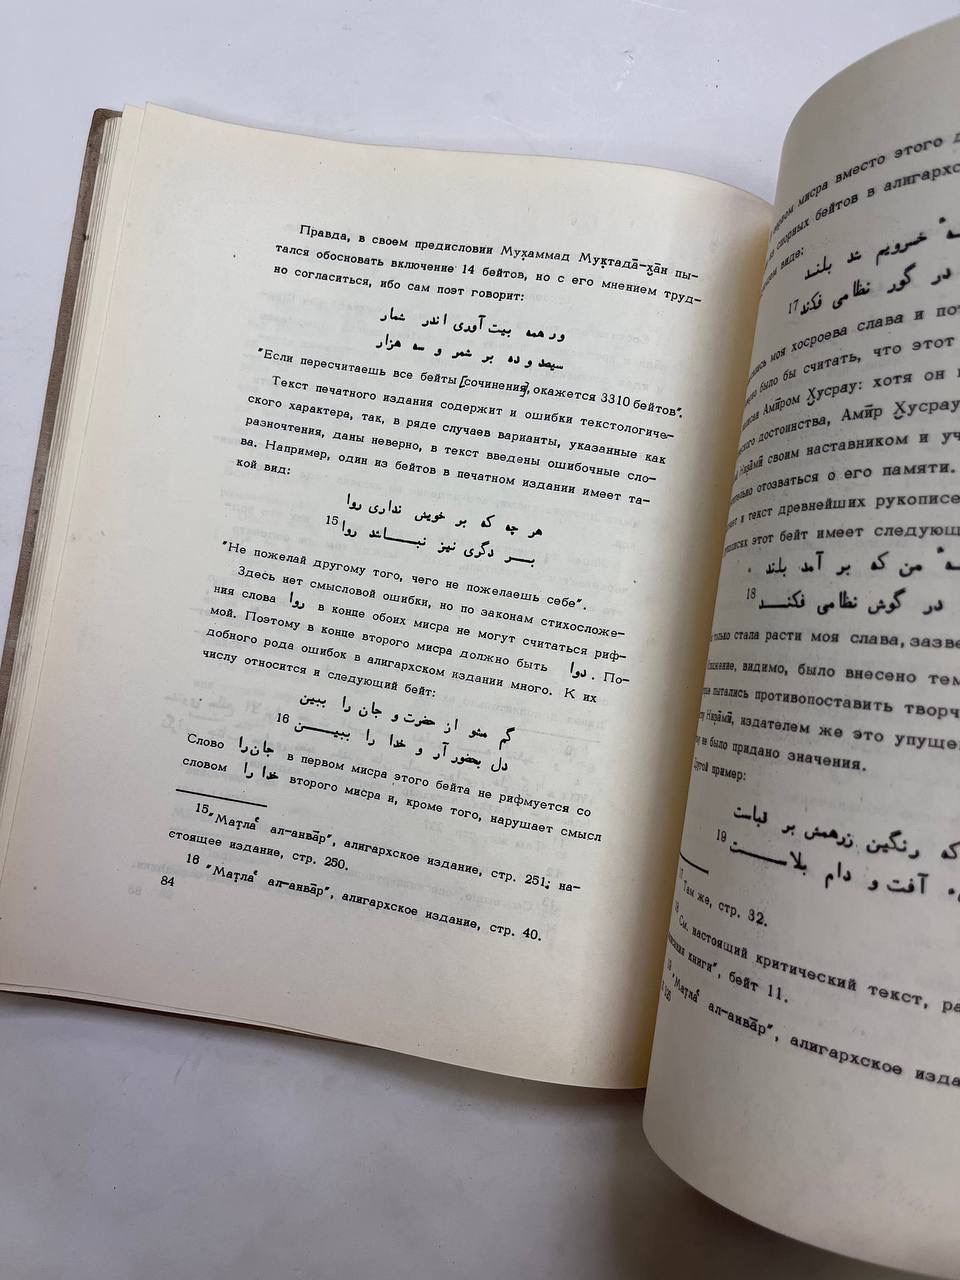 Правда, в своем предисловии Муҳаммад Муқтадā-хāн пы-
тался обосновать включение 14 бейтов, но с его мнением труд-
но согласиться, ибо сам поэт говорит:
ور همه بیت آوری اندر شمار
سیصد و ده بر شمر و سه هزار
"Если пересчитаешь все бейты [сочинения], окажется 3310 бейтов".
Текст печатного издания содержит и ошибки текстологиче-
ского характера, так, в ряде случаев варианты, указанные как
разночтения, даны неверно, в текст введены ошибочные сло-
ва. Например, один из бейтов в печатном издании имеет та-
кой вид:
هر چه که بر خویش نداری روا
بـر دگری نیز نبـانـد روا 15
"Не пожелай другому того, чего не пожелаешь себе".
Здесь нет смысловой ошибки, но по законам стихосложе-
ния слова روا в конце обоих мисра не могут считаться риф-
мой. Поэтому в конце второго мисра должно быть دوا . По-
добного рода ошибок в алигархском издании много. К их
числу относится и следующий бейт:
گم مشو از حضرت و جان را ببین
دل بحضور آر و خدا را ببیـن 16
Слово جان را в первом мисра этого бейта не рифмуется со
словом خدا را второго мисра и, кроме того, нарушает смысл
15 "Матла‘ ал-анвāр", алигархское издание, стр. 251; на-
стоящее издание, стр. 250.
16 "Матла‘ ал-анвāр", алигархское издание, стр. 40.
84
мисра вместо этого
спорных бейтов в алигархс
виде:
خسرویم شد بلند
در گور نظامی فکند 17
моя хосроева слава и пот
было бы считать, что этот
Амӣром Хусрау: хотя он
достоинства, Амӣр Хусрау
своим наставником и уч
отозваться о его памяти.
и текст древнейших рукописе
этот бейт имеет следующ
من که بر آمد بلند
در گوش نظامی فکند 18
только стала расти моя слава, зазве
видимо, было внесено тем
пытались противопоставить творч
издателем же это упущен
не было придано значения.
Другой пример:
که رنگین زرهمش بر قباست
آفت و دام بلاست 19
17 Там же, стр. 32.
18 См. настоящий критический текст, ра
книги", бейт 11.
19 "Матла‘ ал-анвāр", алигархское изда